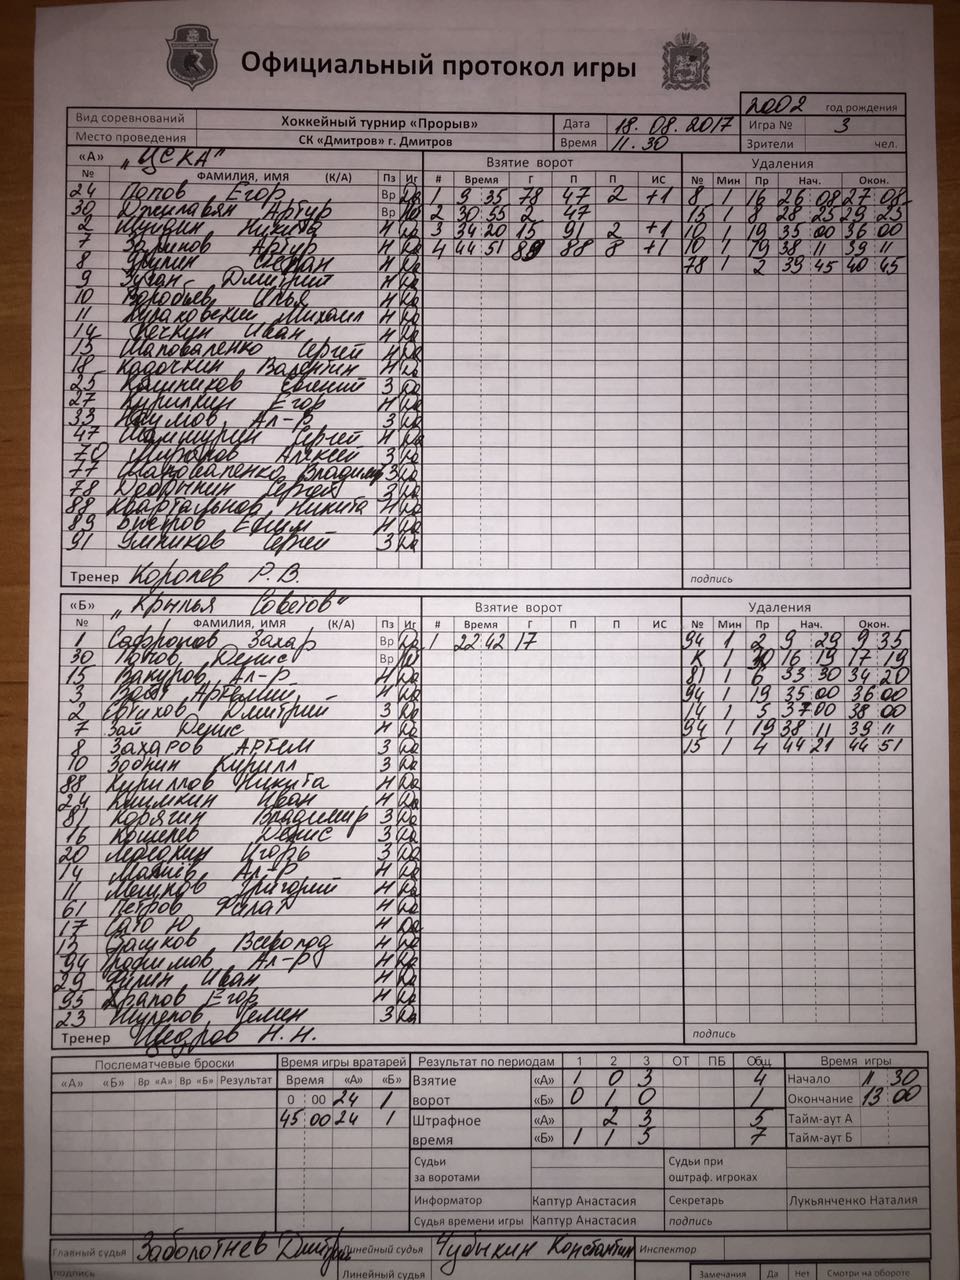 Официальный протокол игры
2002 год рождения
Вид соревнований Хоккейный турнир «Прорыв» Дата 18.08.2017 Игра № 3
Место проведения СК «Дмитров» г. Дмитров Время 11.30 Зрители чел.
«А» „ЦСКА" Взятие ворот Удаления
№ ФАМИЛИЯ, ИМЯ (К/А) Пз Иг # Время Г П П ИС № Мин Пр Нач. Окон.
24 Попов Егор Вр Да 1 9 35 78 47 2 +1 8 1 16 26 08 27 08
30 Артур Вр 2 30 55 2 47 15 1 8 28 25 29 25
2 Никита Н Да 3 34 20 15 91 2 +1 10 1 19 35 00 36 00
7 Артур Н Да 4 44 51 89 88 8 +1 10 1 19 38 11 39 11
8 Степан Н Да 78 1 2 39 45 40 45
9 Дмитрий Н Да
10 Воробьёв Илья Н Да
11 Кулаковский Михаил Н Да
14 Иван Н Да
15 Шаповаленко Сергей Н Да
18 Кадочкин Валентин Н Да
25 Калинников Евгений З Да
27 Кирилкин Егор Н Да
33 Наумов Ал-р З Да
47 Шамшурин Сергей Н Да
70 Миронов Алексей З Да
77 Шаповаленко Владимир З Да
78 Добрынин Сергей З Да
88 Квартальнов Никита Н Да
89 Быстров Ефим Н Да
91 Умников Сергей З Да
Тренер Королев Р.В. подпись
«Б» „Крылья Советов" Взятие ворот Удаления
№ ФАМИЛИЯ, ИМЯ (К/А) Пз Иг # Время Г П П ИС № Мин Пр Нач. Окон.
1 Сафронов Захар Вр Да 1 22 42 17 94 1 2 9 29 9 35
30 Панов Денис Вр К 1 16 19 17 19
15 Вакуров Ал-р Н Да 81 1 6 33 30 34 20
3 Артемий Н Да 94 1 19 35 00 36 00
2 Евтихов Дмитрий З Да 14 1 5 37 00 38 00
7 Зай Денис Н Да 94 1 19 38 11 39 11
8 Захаров Артем З Да 15 1 4 44 21 44 51
10 Зобнин Кирилл З Да
88 Кириллов Никита Н Да
24 Климкин Иван Н Да
81 Корягин Владимир З Да
16 Кошелев Денис З Да
20 Игорь З Да
14 Ал-р Н Да
11 Григорий Н Да
61 Петров Н Да
17 Н Да
13 Всеволод Н Да
94 Трофимов Ал-р Н Да
29 Филин Иван Н Да
95 Храпов Егор Н Да
23 Шулепов Семен З Да
Тренер Щедров Н.Н. подпись
Послематчевые броски Время игры вратарей Результат по периодам 1 2 3 ОТ ПБ Общ Время игры
«А» «Б» Вр «А» Вр «Б» Результат Время «А» «Б» Взятие «А» 1 0 3 4 Начало 11 30
0 00 24 1 ворот «Б» 0 1 0 1 Окончание 13 00
45 00 24 1 Штрафное «А» 2 3 5 Тайм-аут А
время «Б» 1 1 5 7 Тайм-аут Б
Судьи за воротами Судьи при оштраф. игроках
Информатор Каптур Анастасия Секретарь Лукьянченко Наталия
Судья времени игры Каптур Анастасия подпись
Главный судья Заболотнев Дмитрий Линейный судья Чубыкин Константин Инспектор
подпись Линейный судья Замечания Да Нет Смотри на обороте